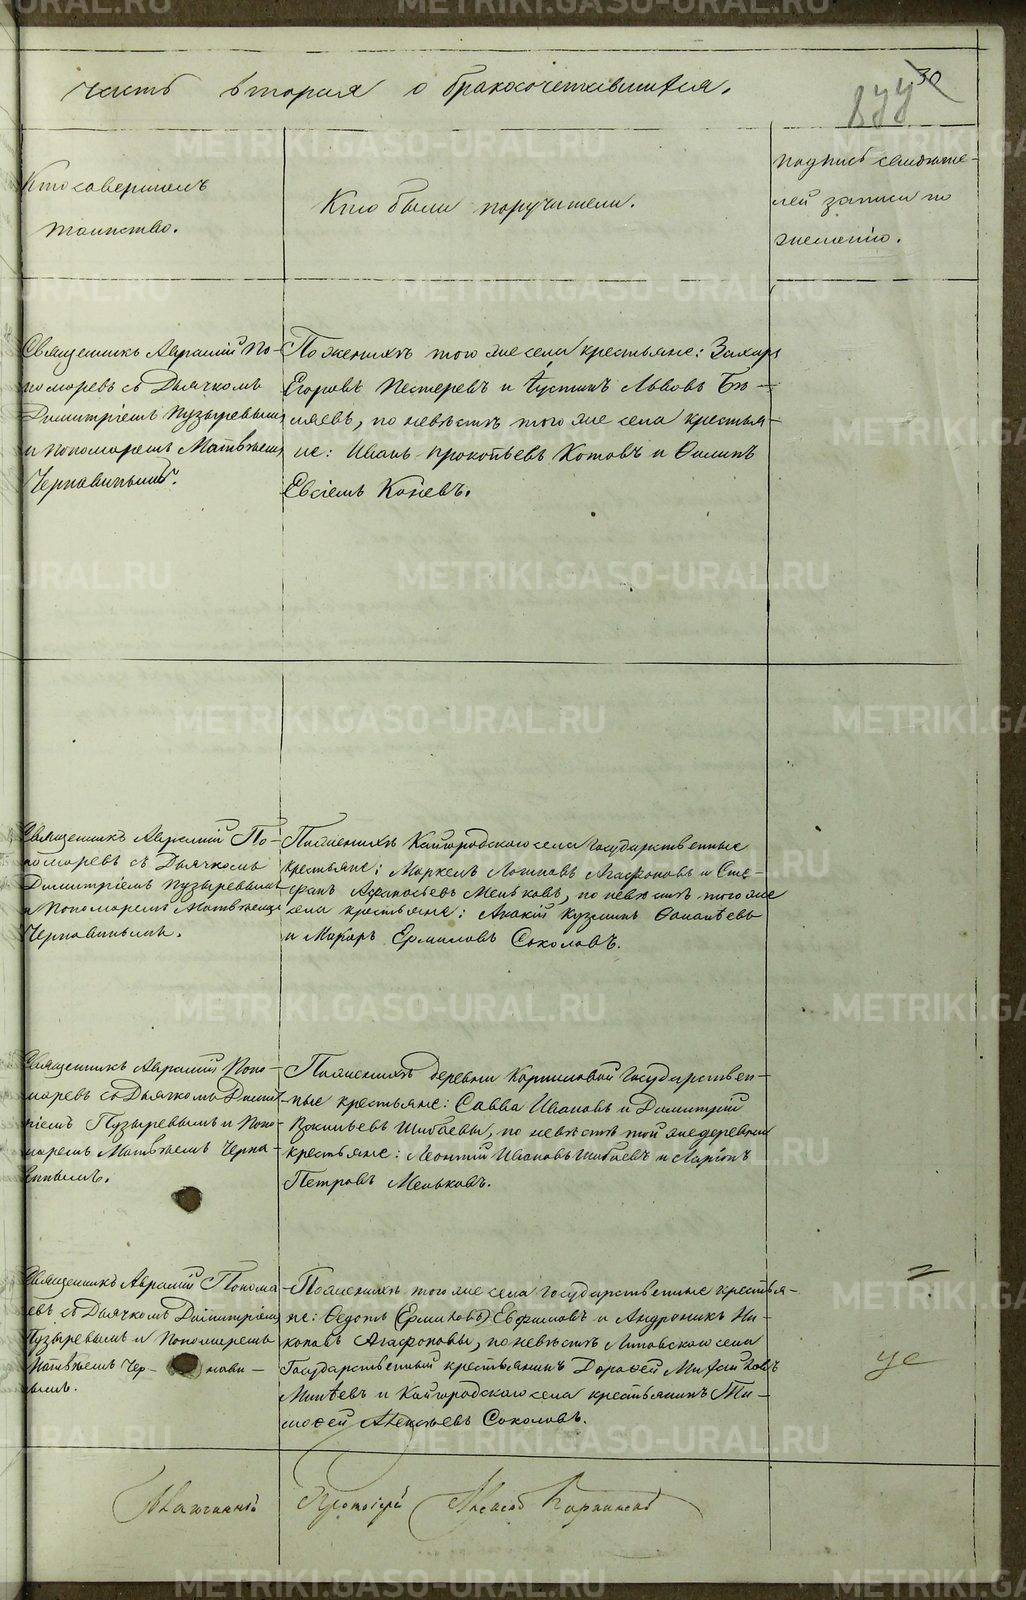 часть вторая о бракосочетавшихся.
30
877
Кто совершилъ
таинство.
Кто были поручители.
подпись свидѣте-
лей записи по
желанію.
Священникъ Аврамій По-
номоревъ съ Дьячкомъ
Димитріемъ Пузыревымъ
и пономаремъ Матвѣемъ
Чернавинымъ.
По женихѣ того же села крестьяне: Захаръ
Егоровъ Пестеревъ и Іустинъ Львовъ Бѣ-
ляевъ, по невѣстѣ того же села крестья-
не: Иванъ Прокопьевъ Котовъ и Филипъ
Евсіевъ Коневъ.
Священникъ Аврамій По-
номоревъ съ Дьячкомъ
Димитріемъ Пузыревымъ
и Пономаремъ Матвѣемъ
Чернавинымъ.
По женихѣ Кайгородскаго села Государственные
крестьяне: Маркелъ Логиновъ Агафоновъ и Сте-
фанъ Афанасьевъ Меньковъ, по невѣстѣ того же
села крестьяне: Акакій Кузминъ
и Макаръ Ермиловъ Соколовъ.
Священникъ Аврамій Поно-
маревъ съ Дьячкомъ Дими-
ріемъ Пузыревымъ и Поно-
маремъ Матвѣемъ Черна-
винымъ.
По женихѣ деревни Корниловой Государствен-
ные крестьяне: Савва Ивановъ и Димитрій
Васильевъ Шибаевы, по невѣстѣ той же деревни
крестьяне: Леонтій Ивановъ Шибаевъ и Ларіонъ
Петровъ Меньковъ.
Священникъ Аврамій Понома-
евъ съ Дьячкомъ Димитріемъ
Пузыревымъ и Пономаремъ
Матвѣемъ Чер- нави-
нымъ.
По женихѣ того же села Государственные крестья-
не: Федотъ (Ермиловъ) Евфимовъ и Андроникъ Ни-
коновъ Агафоновы, по невѣстѣ Липовскаго села
Государственный крестьянинъ Дорофей
Минѣевъ и Кайгородскаго села крестьянинъ Ти-
мофей Алексѣевъ Соколовъ.
Протоіерей
METRIKI.GASO-URAL.RU